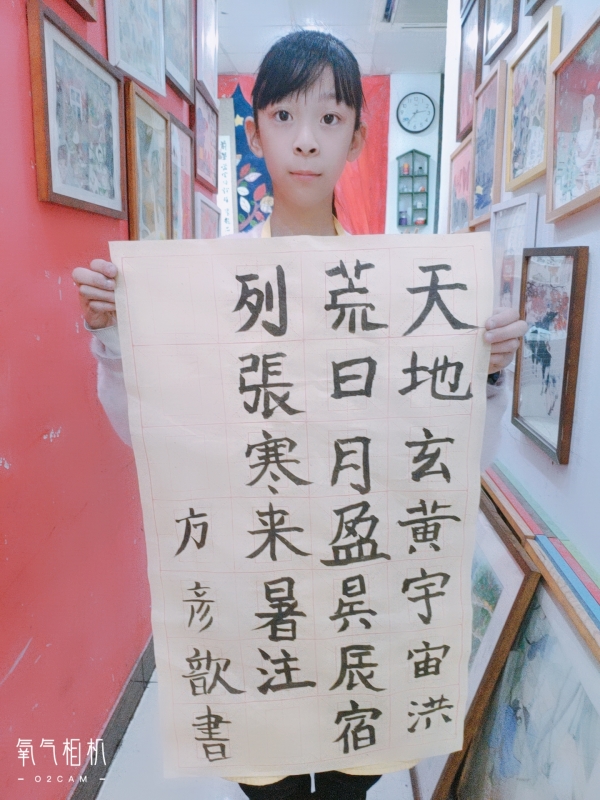 天地玄黄宇宙洪
荒日月盈昃辰宿
列張寒来暑注
方彦歆書
氧气相机
— O2CAM —